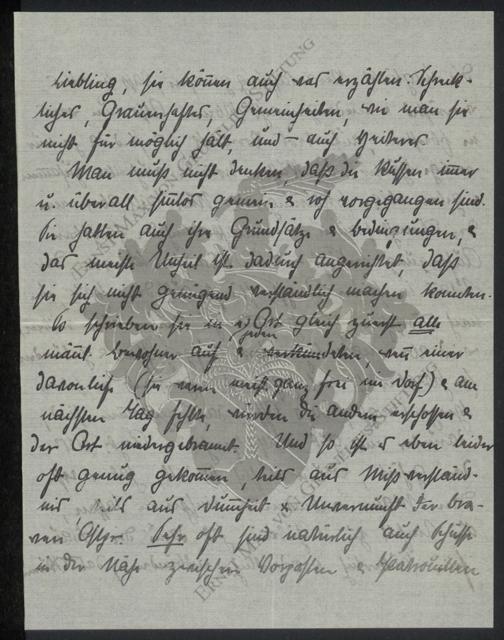 Liebling, sie können auch was erzählen. Schreck-
liches, Grauenhaftes, Gemeinheiten, wie man sie
nicht für möglich hält, und – auch Heiteres.
Man muß nicht denken, daß die Russen immer
u. überall sinnlos gemein & roh vorgegangen sind.
Sie hatten auch ihre Grundsätze & Bedingungen, &
das meiste Unheil ist dadurch angerichtet, daß
sie sich nicht genügend verständlich machen konnten.
So schrieben sie in jedem Ort gleich zuerst alle
männl. Bewohner auf & verkündeten, wenn einer
davonliefe (sie waren meist ganz frei im Dorf) & am
nächsten Tag fehlte, würden die andern erschossen &
der Ort niedergebrannt. Und so ist es eben leider
oft genug gekommen, teils aus Missverständ-
nis, teils aus Dummheit & Unvernunft der bra-
ven Ostpr. Sehr oft sind natürlich auch Schüsse
in der Nähe zwischen Vorposten & Patrouillen
ERNST MAX VON GRUNELIUS-STIFTUNG